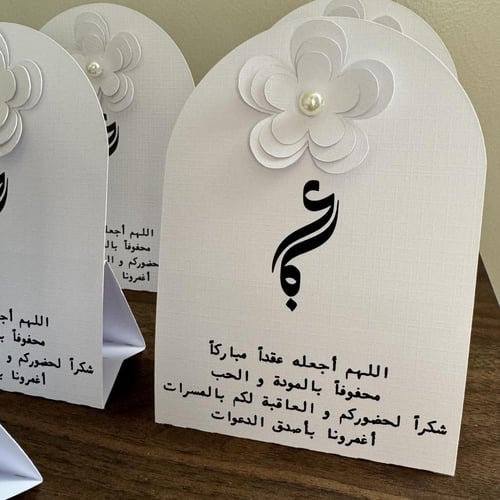 اللهم أجعله عقداً مباركاً
محفوفاً بالمودة و الحب
شكراً لحضوركم و العاقبة لكم بالمسرات
أغمرونا بأصدق الدعوات
اللهم أجعله
محفوفاً بالم
لحضوركم و ال
أغمرونا
اللهم أج
محفوفاً
شكراً لحضوركم و
أغمرونا بأ